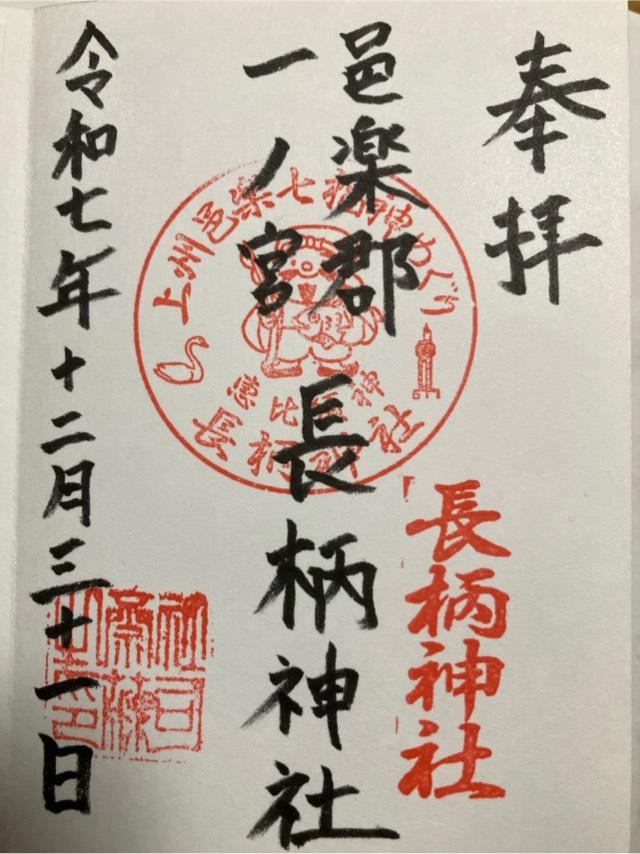 奉拝
邑楽郡
一ノ宮
長柄神社
令和七年十二月三十一日
上州邑楽七福神めぐり
恵比寿神
長柄神社
長柄神社